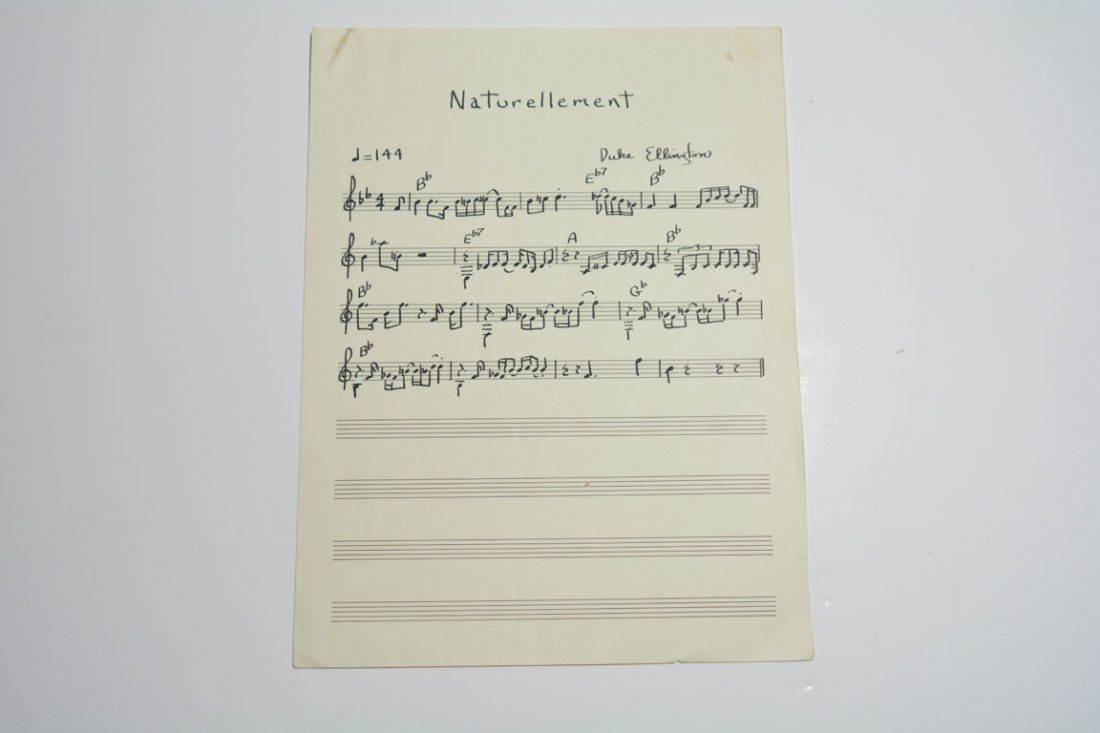 Naturellement
♩=144 Duke Ellington
B♭ E♭7 B♭
E♭7 A B♭
3
B♭ G♭
B♭